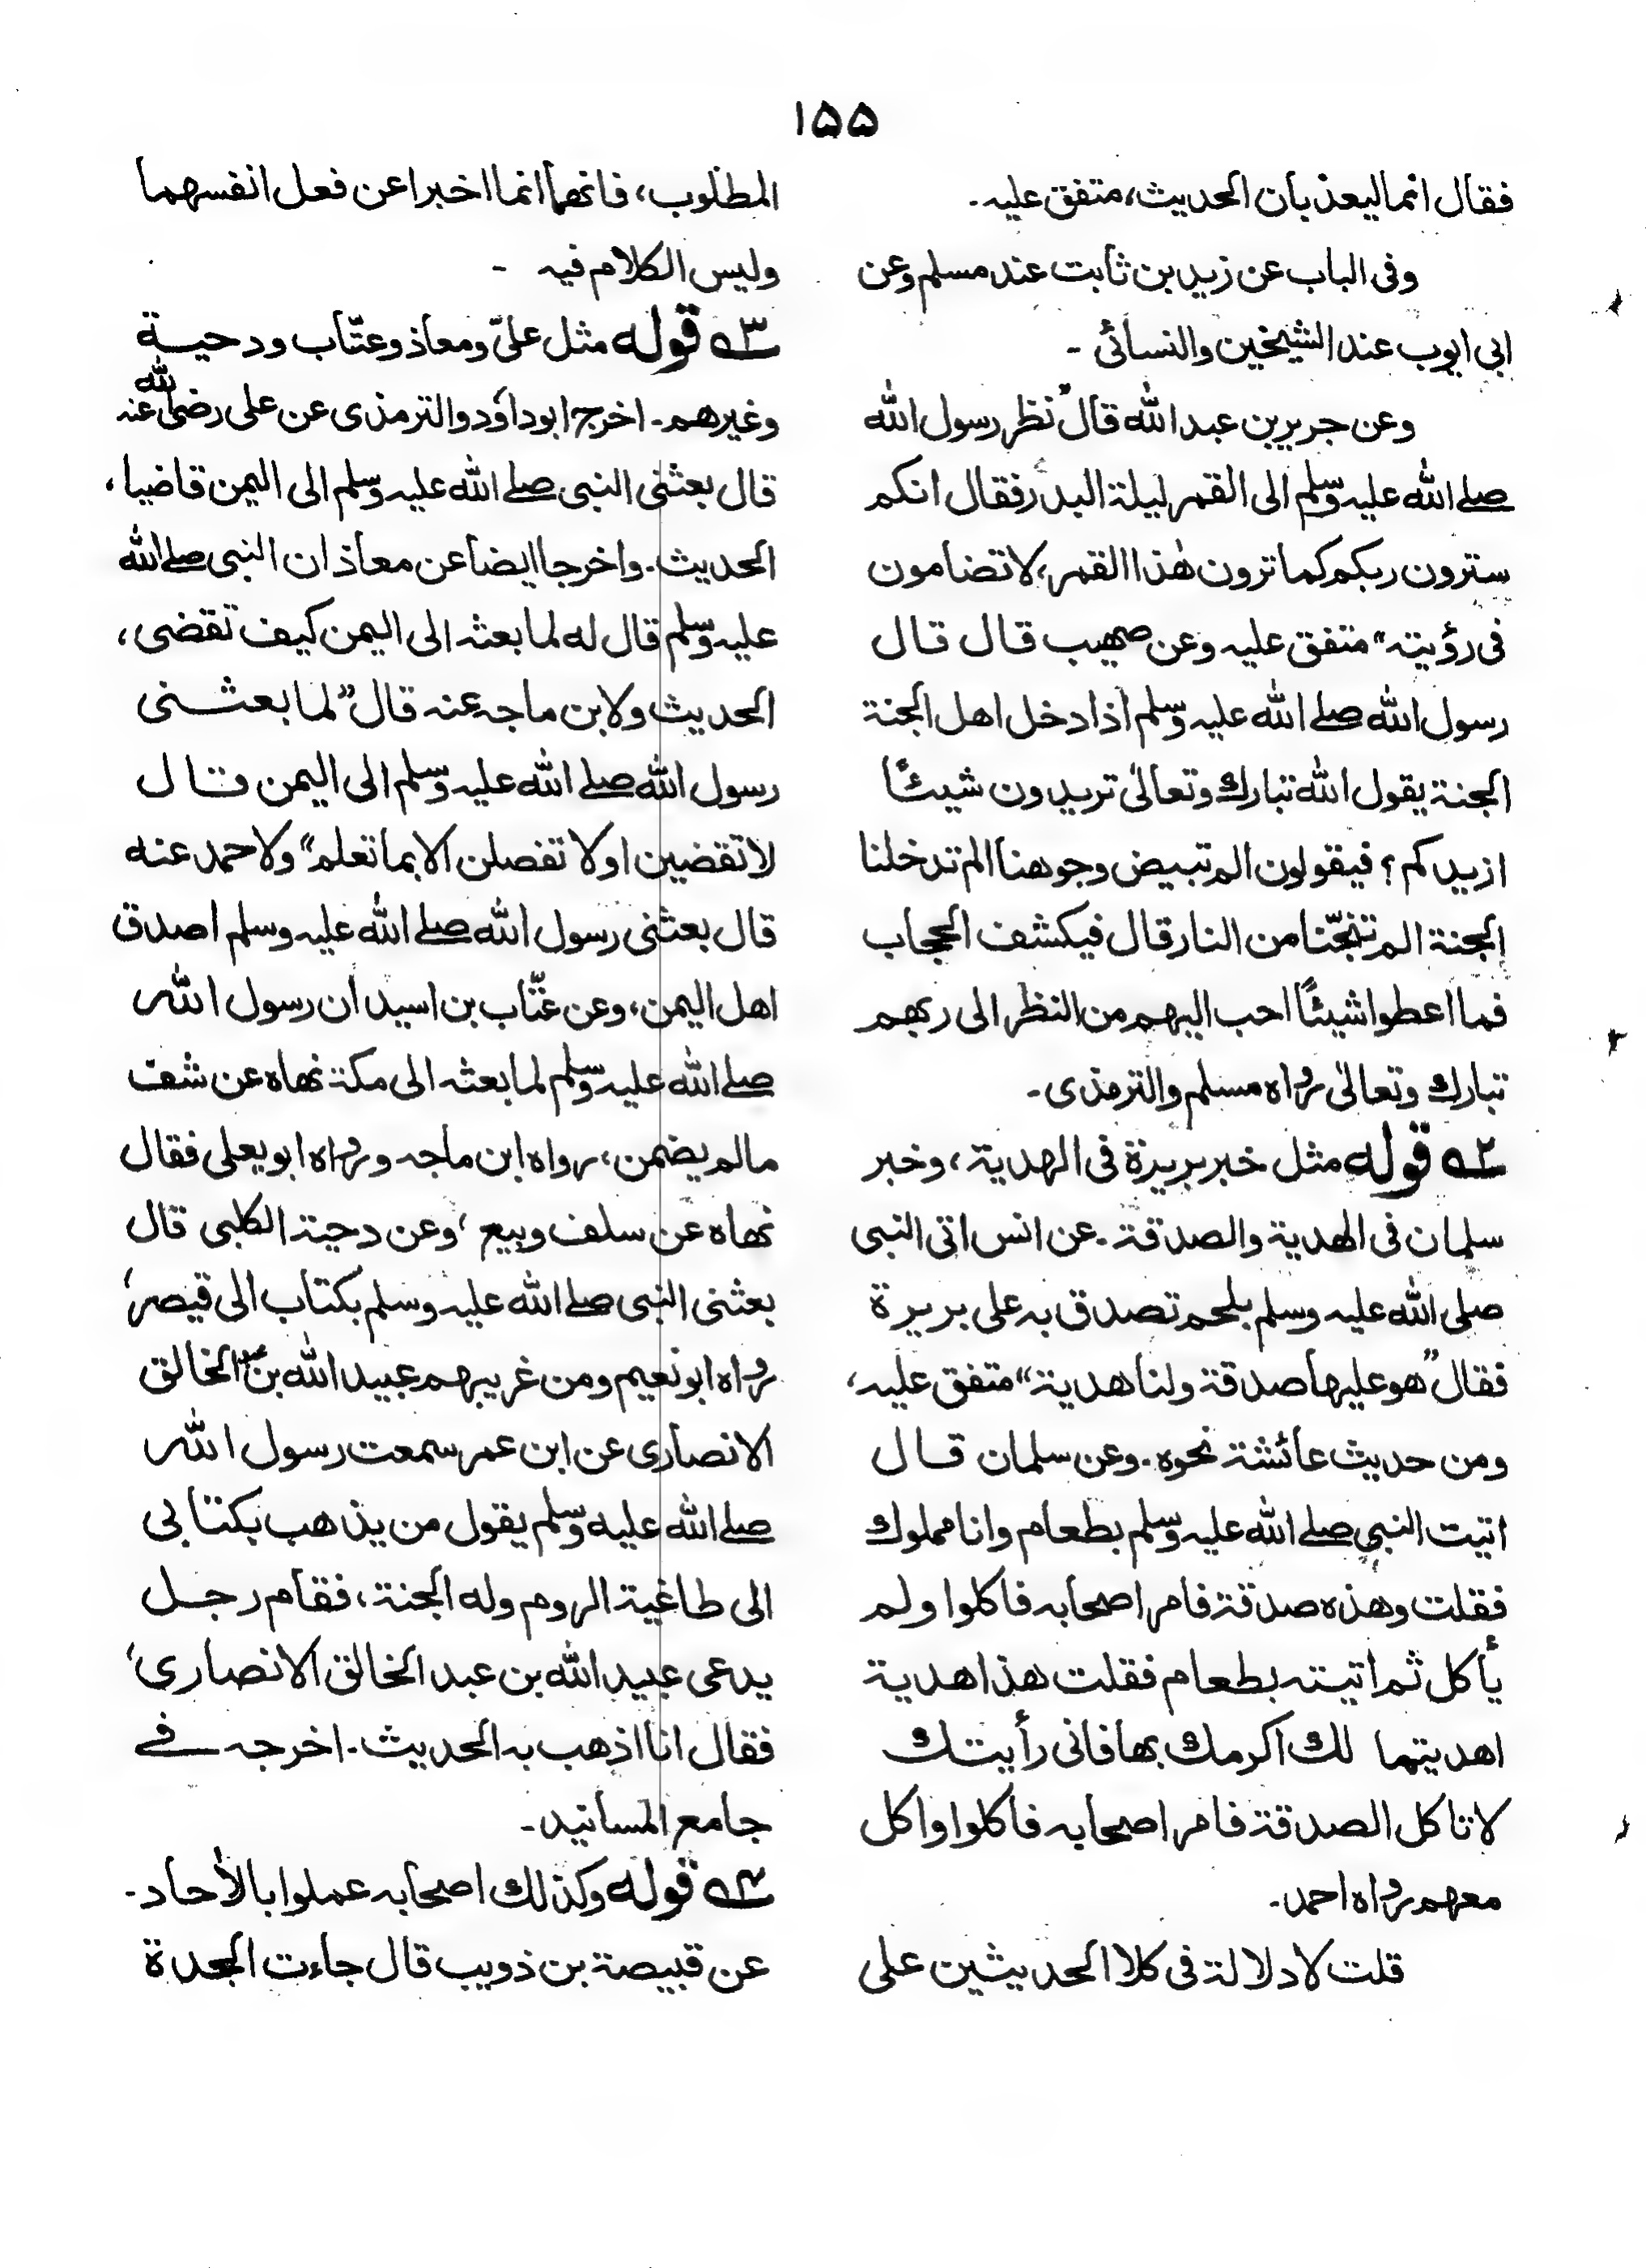 ۱۵۵
فقال انما ليعذبان الحديث، متفق عليه.
وفى الباب عن زيد بن ثابت عند مسلم وعن
ابى ايوب عند الشيخين والنسائى -
وعن جرير بن عبد الله قال” نظر رسول الله
صلے الله عليه وسلم الى القمر ليلة البدر فقال انكم
سترون ربكم كما ترون هٰذا القمر، لا تضامون
فى رؤيته“ متفق عليه وعن صهيب قال قال
رسول الله صلے الله عليه وسلم اذا دخل اهل الجنة
الجنة يقول الله تبارك وتعالىٰ تريدون شيئًا
ازيدكم؟ فيقولون الم تبيض وجوهنا الم تدخلنا
الجنة الم تنجّنا من النار قال فيكشف الحجاب
فما اعطوا شيئًا احب اليهم من النظر الى ربهم
تبارك وتعالىٰ رواه مسلم والترمذى -
۲؎ قوله مثل خبر بريرة فى الهدية، وخبر
سلمان فى الهدية والصدقة. عن انس اتى النبى
صلى الله عليه وسلم بلحم تصدق به على بريرة
فقال” هو عليها صدقة ولنا هدية“ متفق عليه،
ومن حديث عائشة نحوه. وعن سلمان قال
اتيت النبى صلے الله عليه وسلم بطعام وانا مملوك
فقلت وهذه صدقة فامر اصحابه فاكلوا ولم
يأكل ثم اتيته بطعام فقلت هذا هدية
اهديتها لك اكرمك بها فانى رأيتك
لا تاكل الصدقة فامر اصحابه فاكلوا واكل
معهم رواه احمد.
قلت لا دلالة فى كلا الحديثين على
المطلوب، فانهما انما اخبرا عن فعل انفسهما
وليس الكلام فيه -
۳؎ قوله مثل علىّ ومعاذ وعتّاب ودحية
وغيرهم. اخرج ابوداؤد والترمذى عن على رضى الله عنه
قال بعثنى النبى صلے الله عليه وسلم الى اليمن قاضيا،
الحديث. واخرجا ايضا عن معاذ ان النبى صلے الله
عليه وسلم قال له لما بعثه الى اليمن كيف تقضى،
الحديث ولابن ماجه عنه قال” لما بعثنى
رسول الله صلے الله عليه وسلم الى اليمن قال
لا تقضين اولا تفصلن الا بما تعلم“ ولاحمد عنه
قال بعثنى رسول الله صلے الله عليه وسلم اصدق
اهل اليمن، وعن عتّاب بن اسيد ان رسول الله
صلے الله عليه وسلم لما بعثه الى مكة نهاه عن شف
مالم يضمن، رواه ابن ماجه ورواه ابويعلى فقال
نهاه عن سلف وبيع، وعن دحية الكلبى قال
بعثنى النبى صلے الله عليه وسلم بكتاب الى قيصر،
رواه ابونعيم ومن غريبهم عبيد الله بن عبد الخالق
الانصارى عن ابن عمر سمعت رسول الله
صلے الله عليه وسلم يقول من يذهب بكتابى
الى طاغية الروم وله الجنة، فقام رجل
يدعى عبيد الله بن عبد الخالق الانصارى،
فقال انا اذهب به الحديث. اخرجه فے
جامع المسانيد -
۴؎ قوله وكذلك اصحابه عملوا بالاٰحاد -
عن قبيصة بن ذويب قال جاءت الجدة